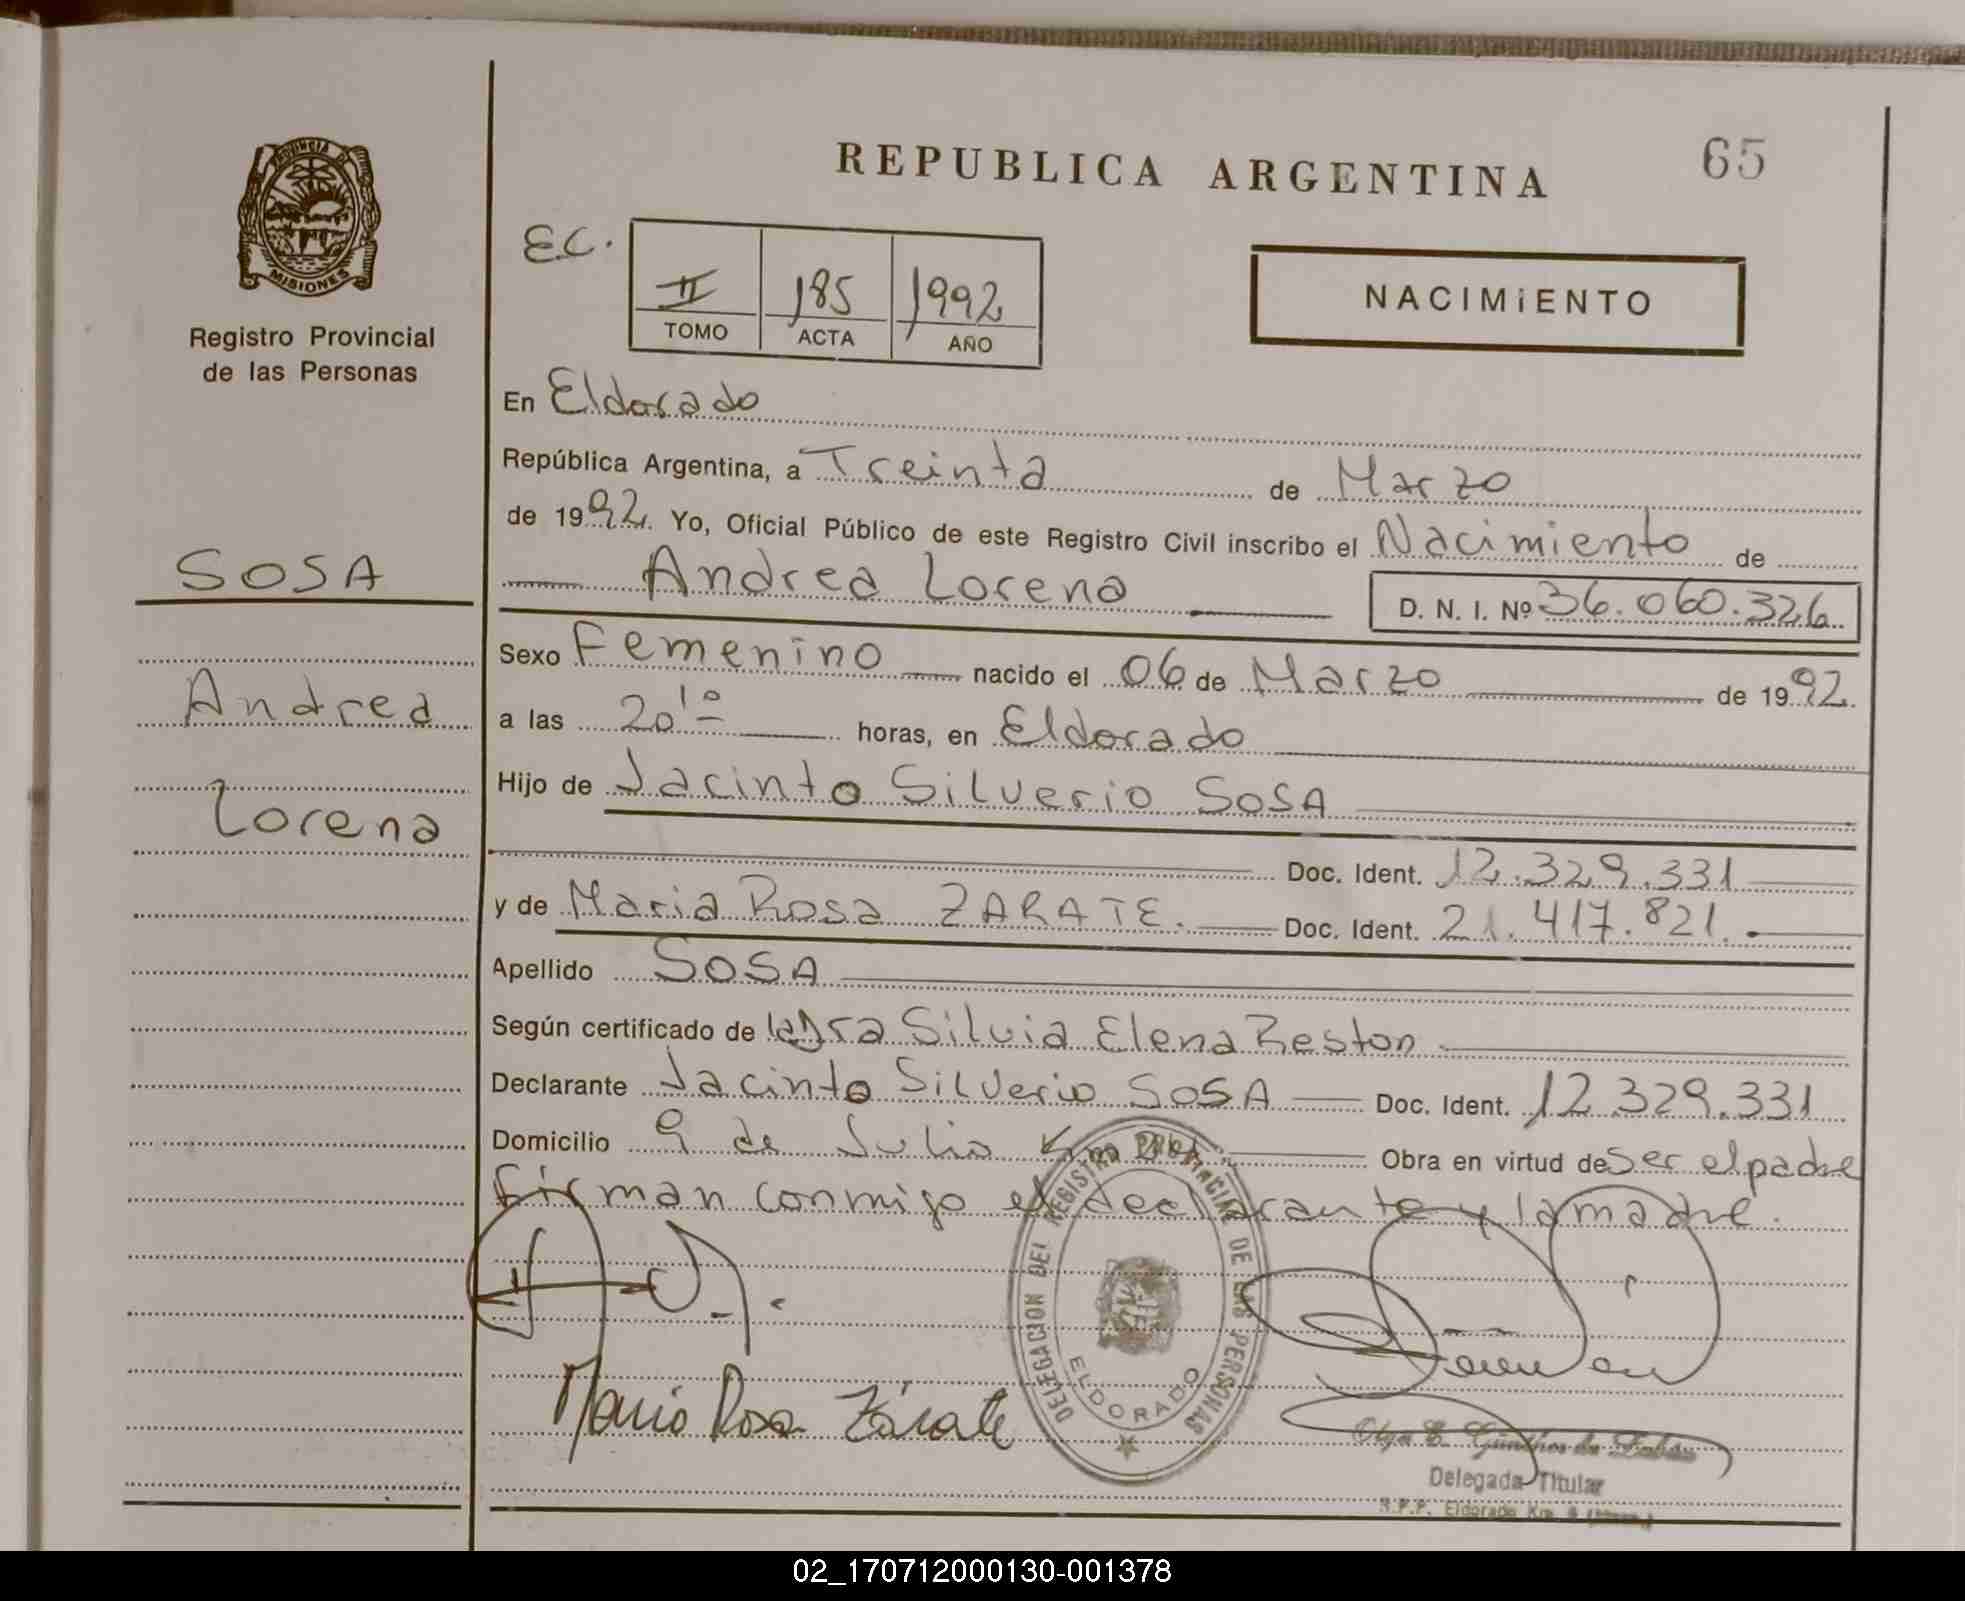 REPUBLICA ARGENTINA
65
PROVINCIA DE
MISIONES
Registro Provincial
de las Personas
E.C.
II 185 1992
TOMO ACTA AÑO
NACIMiENTO
En Eldorado
República Argentina, a Treinta de Marzo
de 1992. Yo, Oficial Público de este Registro Civil inscribo el Nacimiento de
SOSA
Andrea Lorena D. N. I. Nº 36.060.326
Sexo Femenino nacido el 06 de Marzo de 1992.
Andrea
a las 20 horas, en Eldorado
Hijo de Jacinto Silverio SOSA
Lorena
Doc. Ident. 12.329.331
y de Maria Rosa ZARATE. Doc. Ident. 21.417.821.
Apellido SOSA
Según certificado de la Dra Silvia Elena Reston
Declarante Jacinto Silverio SOSA Doc. Ident. 12.329.331
Domicilio 9 de Julio Km Obra en virtud de ser el padre
firman conmigo el declarante y la madre.
DELEGACION DEL REGISTRO PROVINCIAL DE LAS PERSONAS
ELDORADO
Maria Rosa Zárate
Olga E.
Delegada Titular
R.P.P. Eldorado Km. 9
02_170712000130-001378